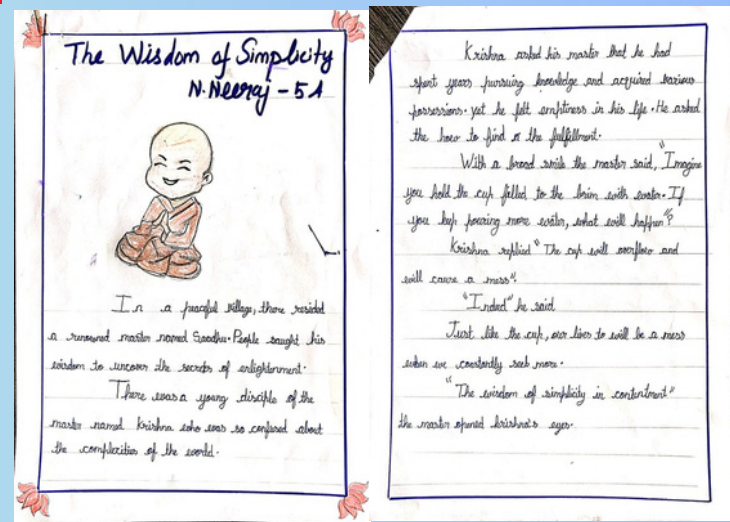 The Wisdom of Simplicity
N. Neeraj - 5A
In a peaceful village, there resided
a renowned master named Saadhu. People saught his
wisdom to uncover the secrets of enlightenment.
There was a young disciple of the
master named Krishna who was so confused about
the complexities of the world.
Krishna asked his master that he had
spent years pursuing knowledge and acquired various
possessions. yet he felt emptiness in his life. He asked
the how to find the fulfillment.
With a broad smile the master said, "Imagine
you hold the cup filled to the brim with water. If
you keep pouring more water, what will happen"?
Krishna replied "The cup will overflow and
will cause a mess".
"Indeed" he said
Just like the cup, our lives to will be a mess
when we constantly seek more.
"The wisdom of simplicity in contentment"
the master opened krishna's eyes.